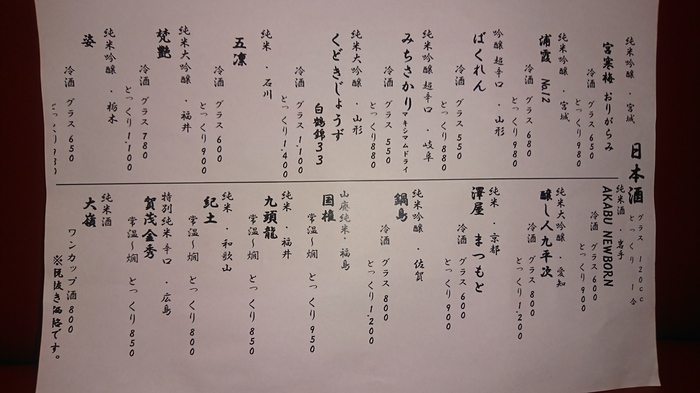 日本酒
グラス 120cc
とっくり 1合
純米吟醸 ・ 宮城
宮寒梅 おりがらみ
冷酒 グラス 650
とっくり 980
純米吟醸 ・ 宮城
浦霞 No.12
冷酒 グラス 680
とっくり 980
吟醸 超辛口 ・ 山形
ばくれん
冷酒 グラス 550
とっくり 880
純米吟醸 超辛口 ・ 岐阜
みちさかり マキシマムドライ
冷酒 グラス 550
とっくり 880
純米大吟醸 ・ 山形
くどきじょうず
白鶴錦33
冷酒 グラス 1,100
とっくり 1,400
純米 ・ 石川
五凛
冷酒 グラス 600
とっくり 900
純米大吟醸 ・ 福井
梵艶
冷酒 グラス 780
とっくり 1,100
純米吟醸 ・ 栃木
姿
冷酒 グラス 650
とっくり
純米酒 ・ 岩手
AKABU NEWBORN
冷酒 グラス 600
とっくり 900
純米大吟醸 ・ 愛知
醸し人九平次
冷酒 グラス 800
とっくり 1,200
純米 ・ 京都
澤屋 まつもと
冷酒 グラス 600
とっくり 900
純米吟醸 ・ 佐賀
鍋島
冷酒 グラス 800
とっくり 1,200
山廃純米 ・ 福島
国権
常温〜燗 とっくり 950
純米 ・ 福井
九頭龍
常温〜燗 とっくり 850
純米 ・ 和歌山
紀土
常温〜燗 とっくり 800
特別純米 辛口 ・ 広島
賀茂金秀
常温〜燗 とっくり 850
純米酒
大嶺
ワンカップ酒 800
※税抜き価格です。